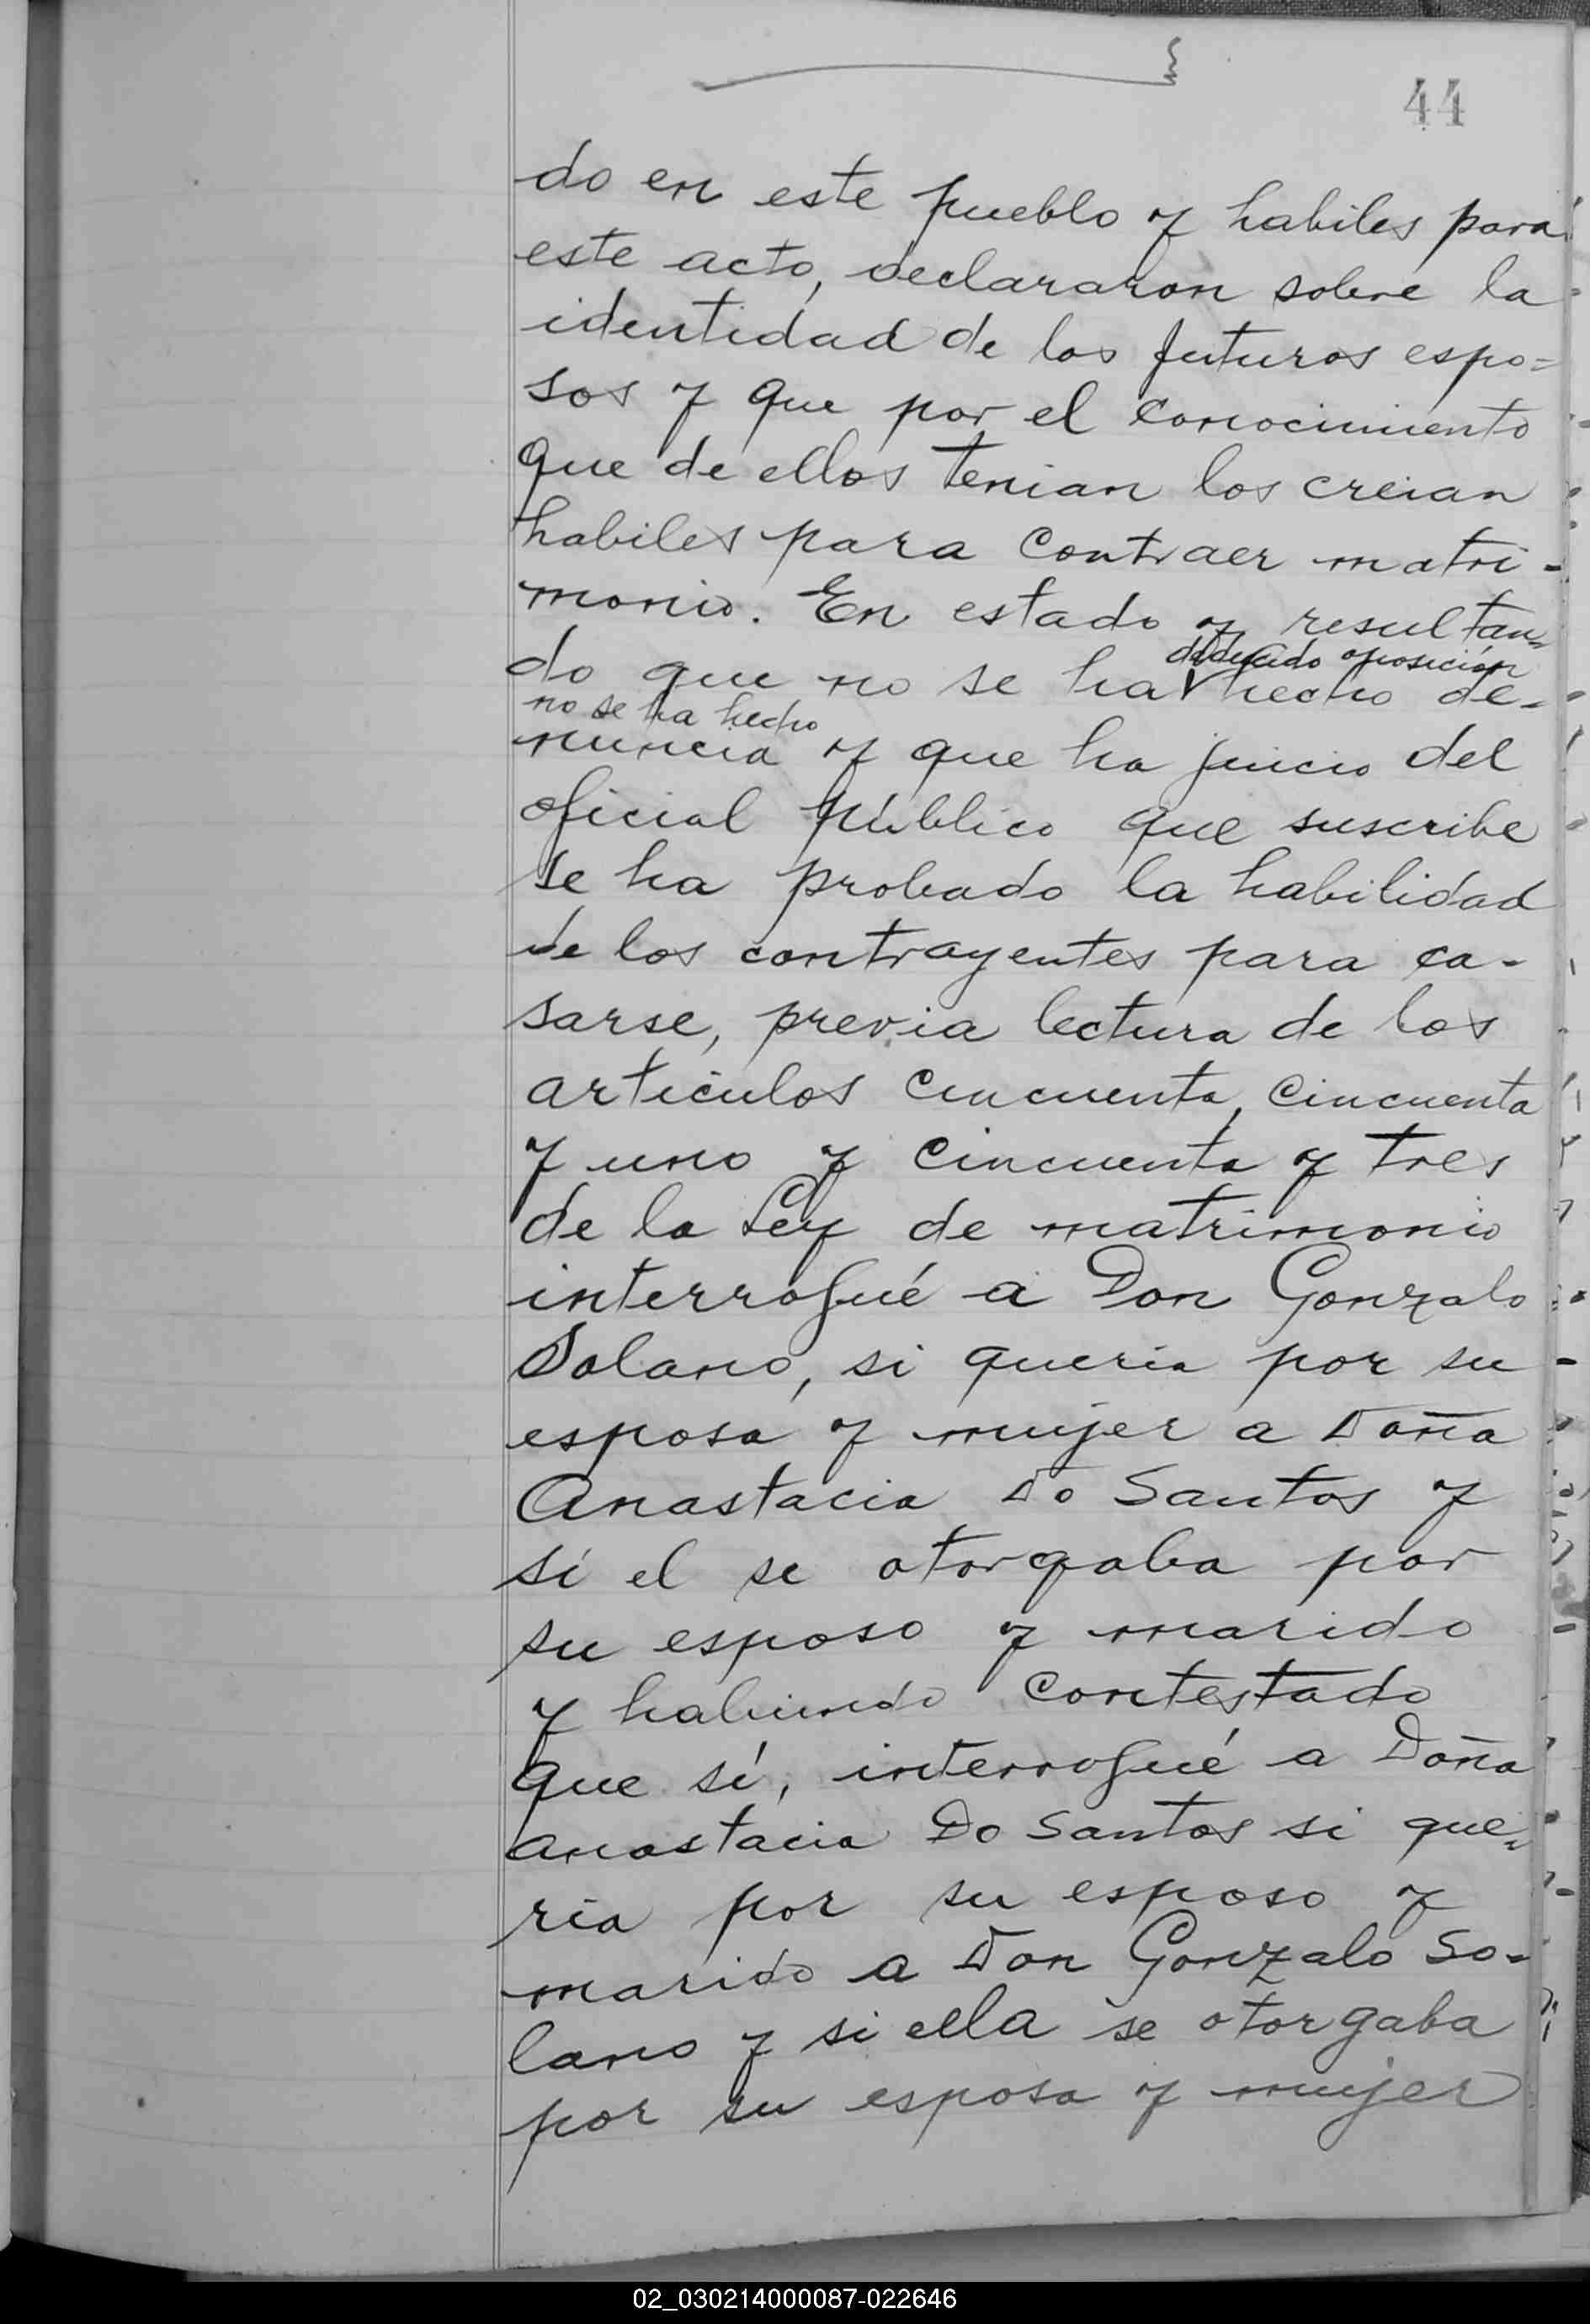 44
do en este pueblo y habiles para
este acto, declararon sobre la
identidad de los futuros espo=
sos y que por el conocimiento
que de ellos tenian los creian
habiles para contraer matri-
monio. En estado y resultan=
deducido oposición
do que no se ha hecho de-
no se ha hecho
nuncia y que ha juicio del
oficial público que suscribe
se ha probado la habilidad
de los contrayentes para ca-
sarse, previa lectura de los
articulos cincuenta, cincuenta
y uno y cincuenta y tres
de la Ley de matrimonio
interrogué a Don Gonzalo
Solano, si queria por su
esposa y mujer a Doña
Anastacia Do Santos y
si el se otorgaba por
su esposo y marido
y habiendo contestado
que sí, interrogué a Doña
Anastacia Do Santos si que=
ria por su esposo y
marido a Don Gonzalo So-
lano y si ella se otorgaba
por su esposa y mujer
02_030214000087-022646